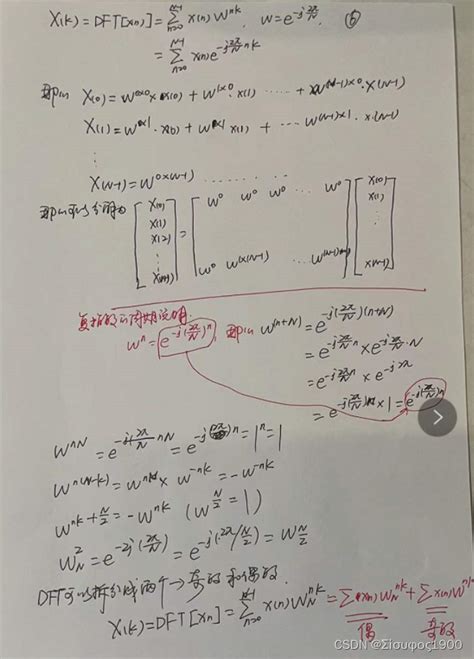 X(k) = DFT[x(n)] = Σ_{n=0}^{N-1} x(n) W^{nk}, W = e^{-j\frac{2π}{N}}
= Σ_{n=0}^{N-1} x(n) e^{-j\frac{2π}{N}nk}
X(0) = W^{0×0}×x(0) + W^{1×0}·x(1) ····· + W^{(N-1)×0}·x(N-1)
X(1) = W^{0×1}·x(0) + W^{1×1}x(1) + ··· W^{(N-1)×1}·x(N-1)
⋮
X(N-1) = W^{0×(N-1)} ········
[X(0) X(1) X(2) ⋮ X(N-1)] = [W^0 W^0 W^0 ··· W^0 W^0 W^{1×(N-1)} ···] [x(0) x(1) ⋮ x(N-1)]
周期说明
W^n = e^{-j(\frac{2π}{N})n}, W^{(n+N)} = e^{-j(\frac{2π}{N})(n+N)}
= e^{-j\frac{2π}{N}n} × e^{-j\frac{2π}{N}·N}
= e^{-j\frac{2π}{N}n} × e^{-j2π}
= e^{-j(\frac{2π}{N})n} × 1 = e^{-j(\frac{2π}{N})n}
W^{nN} = e^{-j\frac{2π}{N}nN} = e^{-j(2π)n} = 1^n = 1
W^{n(N-k)} = W^{nN} × W^{-nk} = -W^{-nk}
W^{nk+\frac{N}{2}} = -W^{nk} (W^{\frac{N}{2}} = 1)
W_N^2 = e^{-2j(\frac{2π}{N})} = e^{-j(2π/\frac{N}{2})} = W\frac{N}{2}
DFT可以拆分成两个→奇的和偶的.
X(k) = DFT[xn] = Σ_{n=0}^{N-1} x(n) W_N^{nk} = Σ x(n) W_N^{nk} + Σ x(n) W^{nk}
偶 奇的
CSDN @Σίσυφος1900